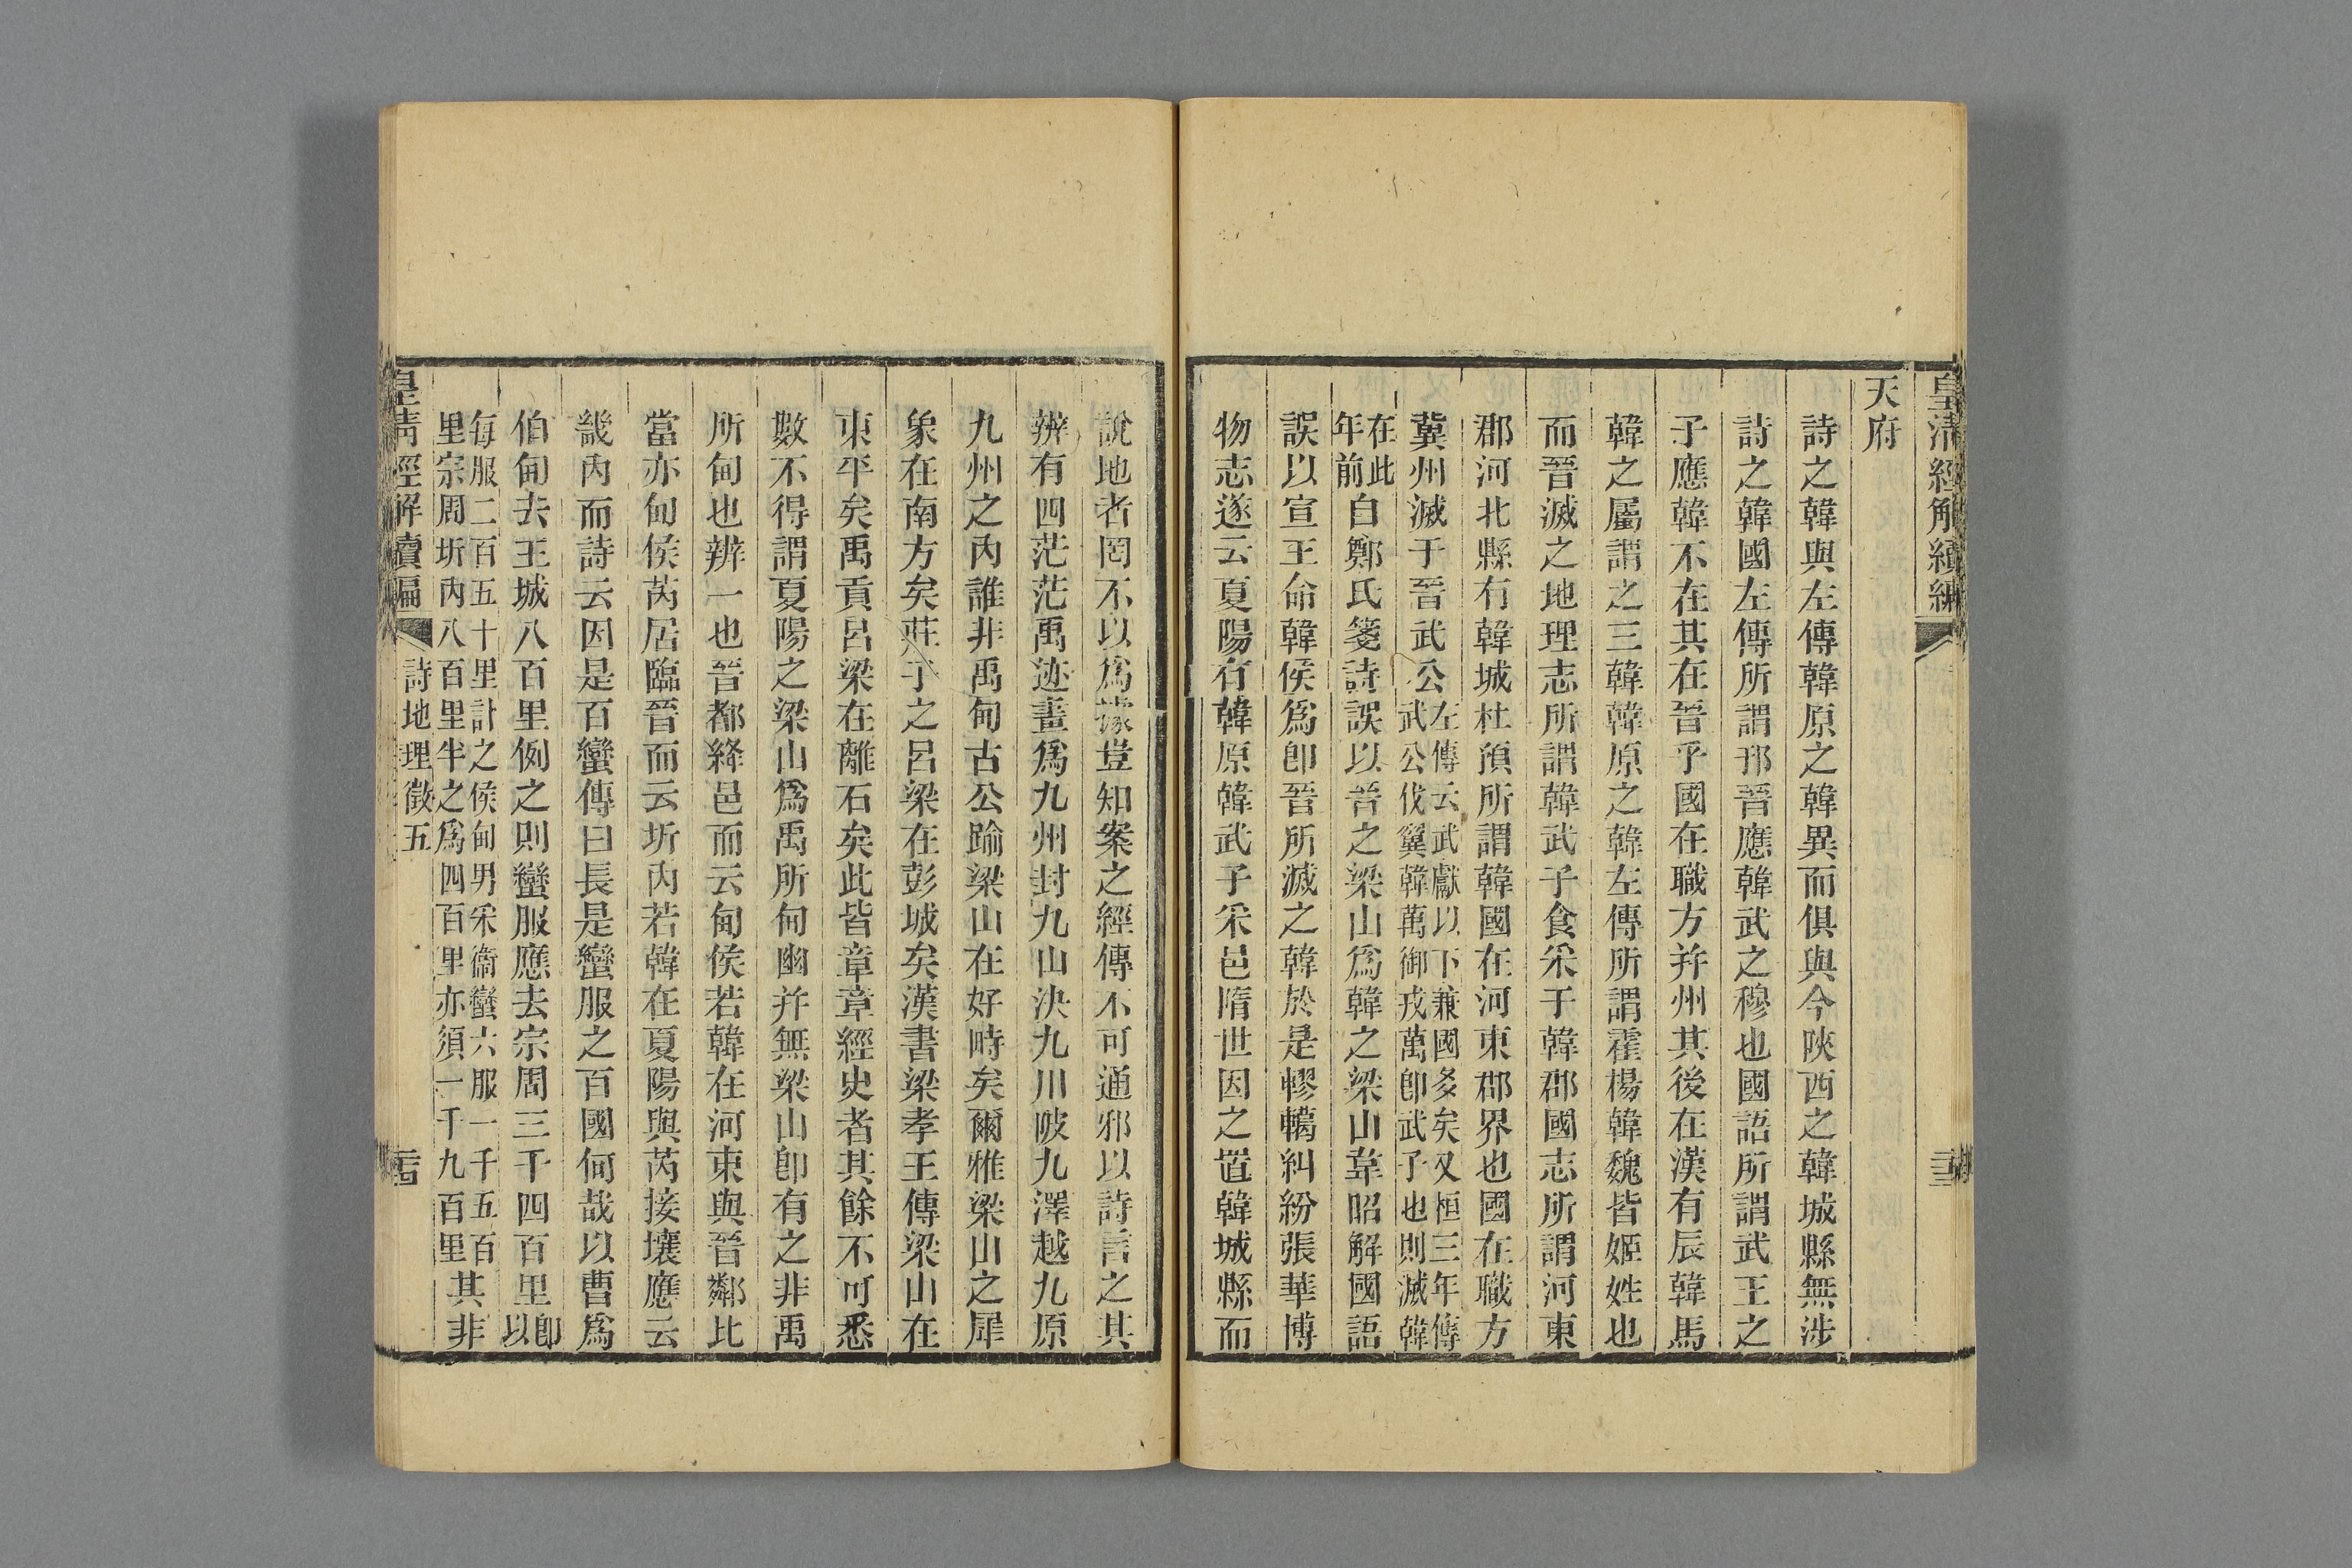 皇清經解續編
天府
詩之韓與左傳韓原之韓異而俱與今陝西之韓城縣無涉
詩之韓國左傳所謂邘晉應韓武之穆也國語所謂武王之
子應韓不在其在晉乎國在職方幷州其後在漢有辰韓馬
韓之屬謂之三韓韓原之韓左傳所謂霍楊韓魏皆姬姓也
而晉滅之地理志所謂韓武子食采于韓郡國志所謂河東
郡河北縣有韓城杜預所謂韓國在河東郡界也國在職方
冀州滅于晉武公左傳云武獻以下兼國多矣又桓三年傳
武公伐翼韓萬御戎萬卽武子也則滅韓
在此
年前自鄭氏箋詩誤以晉之梁山爲韓之梁山韋昭解國語
誤以宣王命韓侯爲卽晉所滅之韓於是轇轕糾紛張華博
物志遂云夏陽有韓原韓武子采邑隋世因之置韓城縣而
說地者罔不以爲據豈知案之經傳不可通邪以詩言之其
辨有四茫茫禹迹畫爲九州封九山決九川陂九澤越九原
九州之內誰非禹甸古公踰梁山在好畤矣爾雅梁山之犀
象在南方矣莊子之呂梁在彭城矣漢書梁孝王傳梁山在
東平矣禹貢呂梁在離石矣此皆章章經史者其餘不可悉
數不得謂夏陽之梁山爲禹所甸幽幷無梁山卽有之非禹
所甸也辨一也晉都絳邑而云甸侯若韓在河東與晉鄰比
當亦甸侯芮居臨晉而云圻內若韓在夏陽與芮接壤應云
畿內而詩云因是百蠻傳曰長是蠻服之百國何哉以曹爲
伯甸去王城八百里例之則蠻服應去宗周三千四百里卽
以
每服二百五十里計之侯甸男采衞蠻六服一千五百
里宗周圻內八百里半之爲四百里亦須一千九百里其非
皇淸經解續編
詩地理徵五